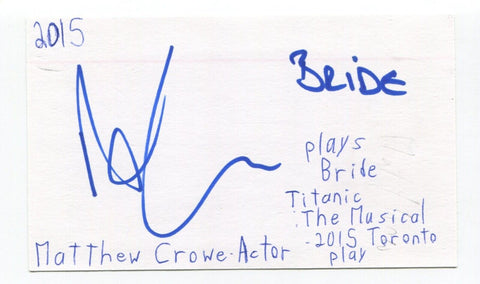 2015
BRiDE
plays
Bride
Titanic
: The Musical
- 2015 Toronto
play
Matthew Crowe - Actor